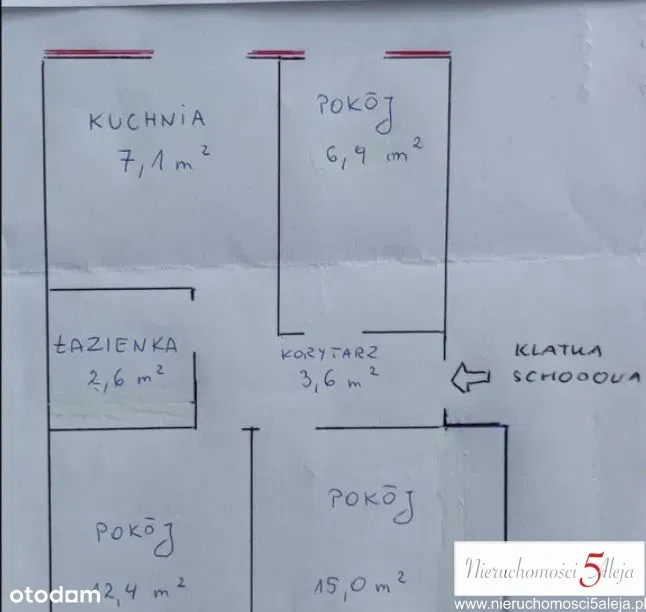 KUCHNIA
7,1 m²
POKÓJ
6,4 m²
ŁAZIENKA
2,6 m²
KORYTARZ
3,6 m²
KLATKA
SCHODOWA
POKÓJ
12,4 m²
POKÓJ
15,0 m²
Nieruchomości 5 Aleja
www.nieruchomosci5aleja.pl
otodom